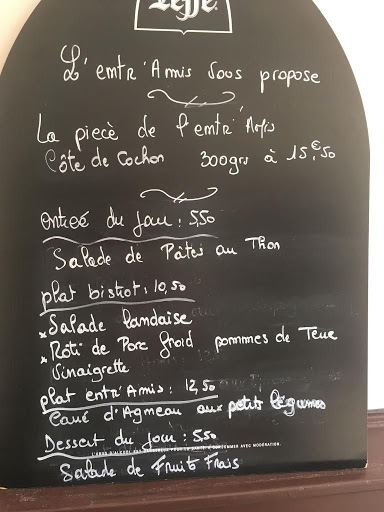 Leffe
L'entr'Amis Vous propose
La piecè de l'entr'Amis
Côte de Cochon 300grs à 15,€50
Entreé du Jour : 5,50
Salade de Pâtes au Thon
plat bistrot : 10,50
* Salade landaise
* Rôti de Porc froid pommes de Terre
Vinaigrette
plat entr'Amis : 12,50
Carré d'Agneau aux petits légumes
Dessert du Jour : 5,50
L'ABUS D'ALCOOL EST DANGEREUX POUR LA SANTÉ, À CONSOMMER AVEC MODÉRATION.
Salade de Fruits Frais